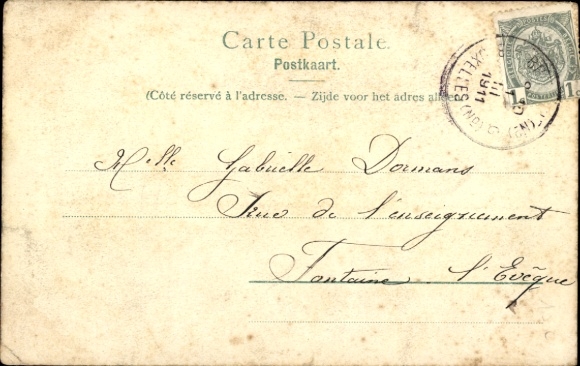 Carte Postale.
Postkaart.
(Côté réservé à l'adresse. — Zijde voor het adres
1911
1
1
Melle Gabrielle Dormans
Rue de l'enseignement
Fontaine l'Evêque